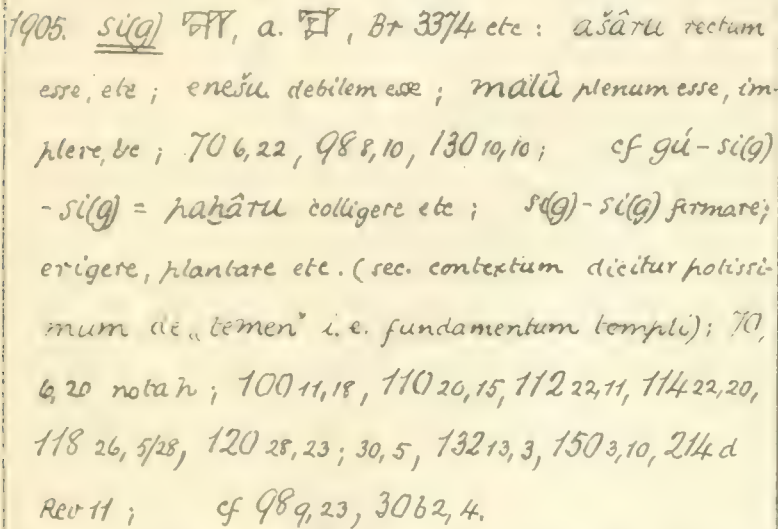 1905. si(g) , a. , Br 3374 etc : ašâru rectum
esse, etc ; enešu debilem esse ; malû plenum esse, im-
plere, etc ; 70 6,22 , 98 8,10 , 130 10,10 ; cf gú-si(g)
-si(g) = paḫâru colligere etc ; si(g)-si(g) firmare;
erigere, plantare etc. (sec. contextum dicitur potissi-
mum de „temen" i. e. fundamentum templi) ; 70,
6,20 nota h ; 100 11,18 , 110 20,15 , 112 22,11 , 114 22,20 ,
118 26, 5/28 , 120 28,23 ; 30,5 , 132 13,3 , 150 3,10 , 214 d
Rev 11 ; cf 98 9,23 , 306 2,4.